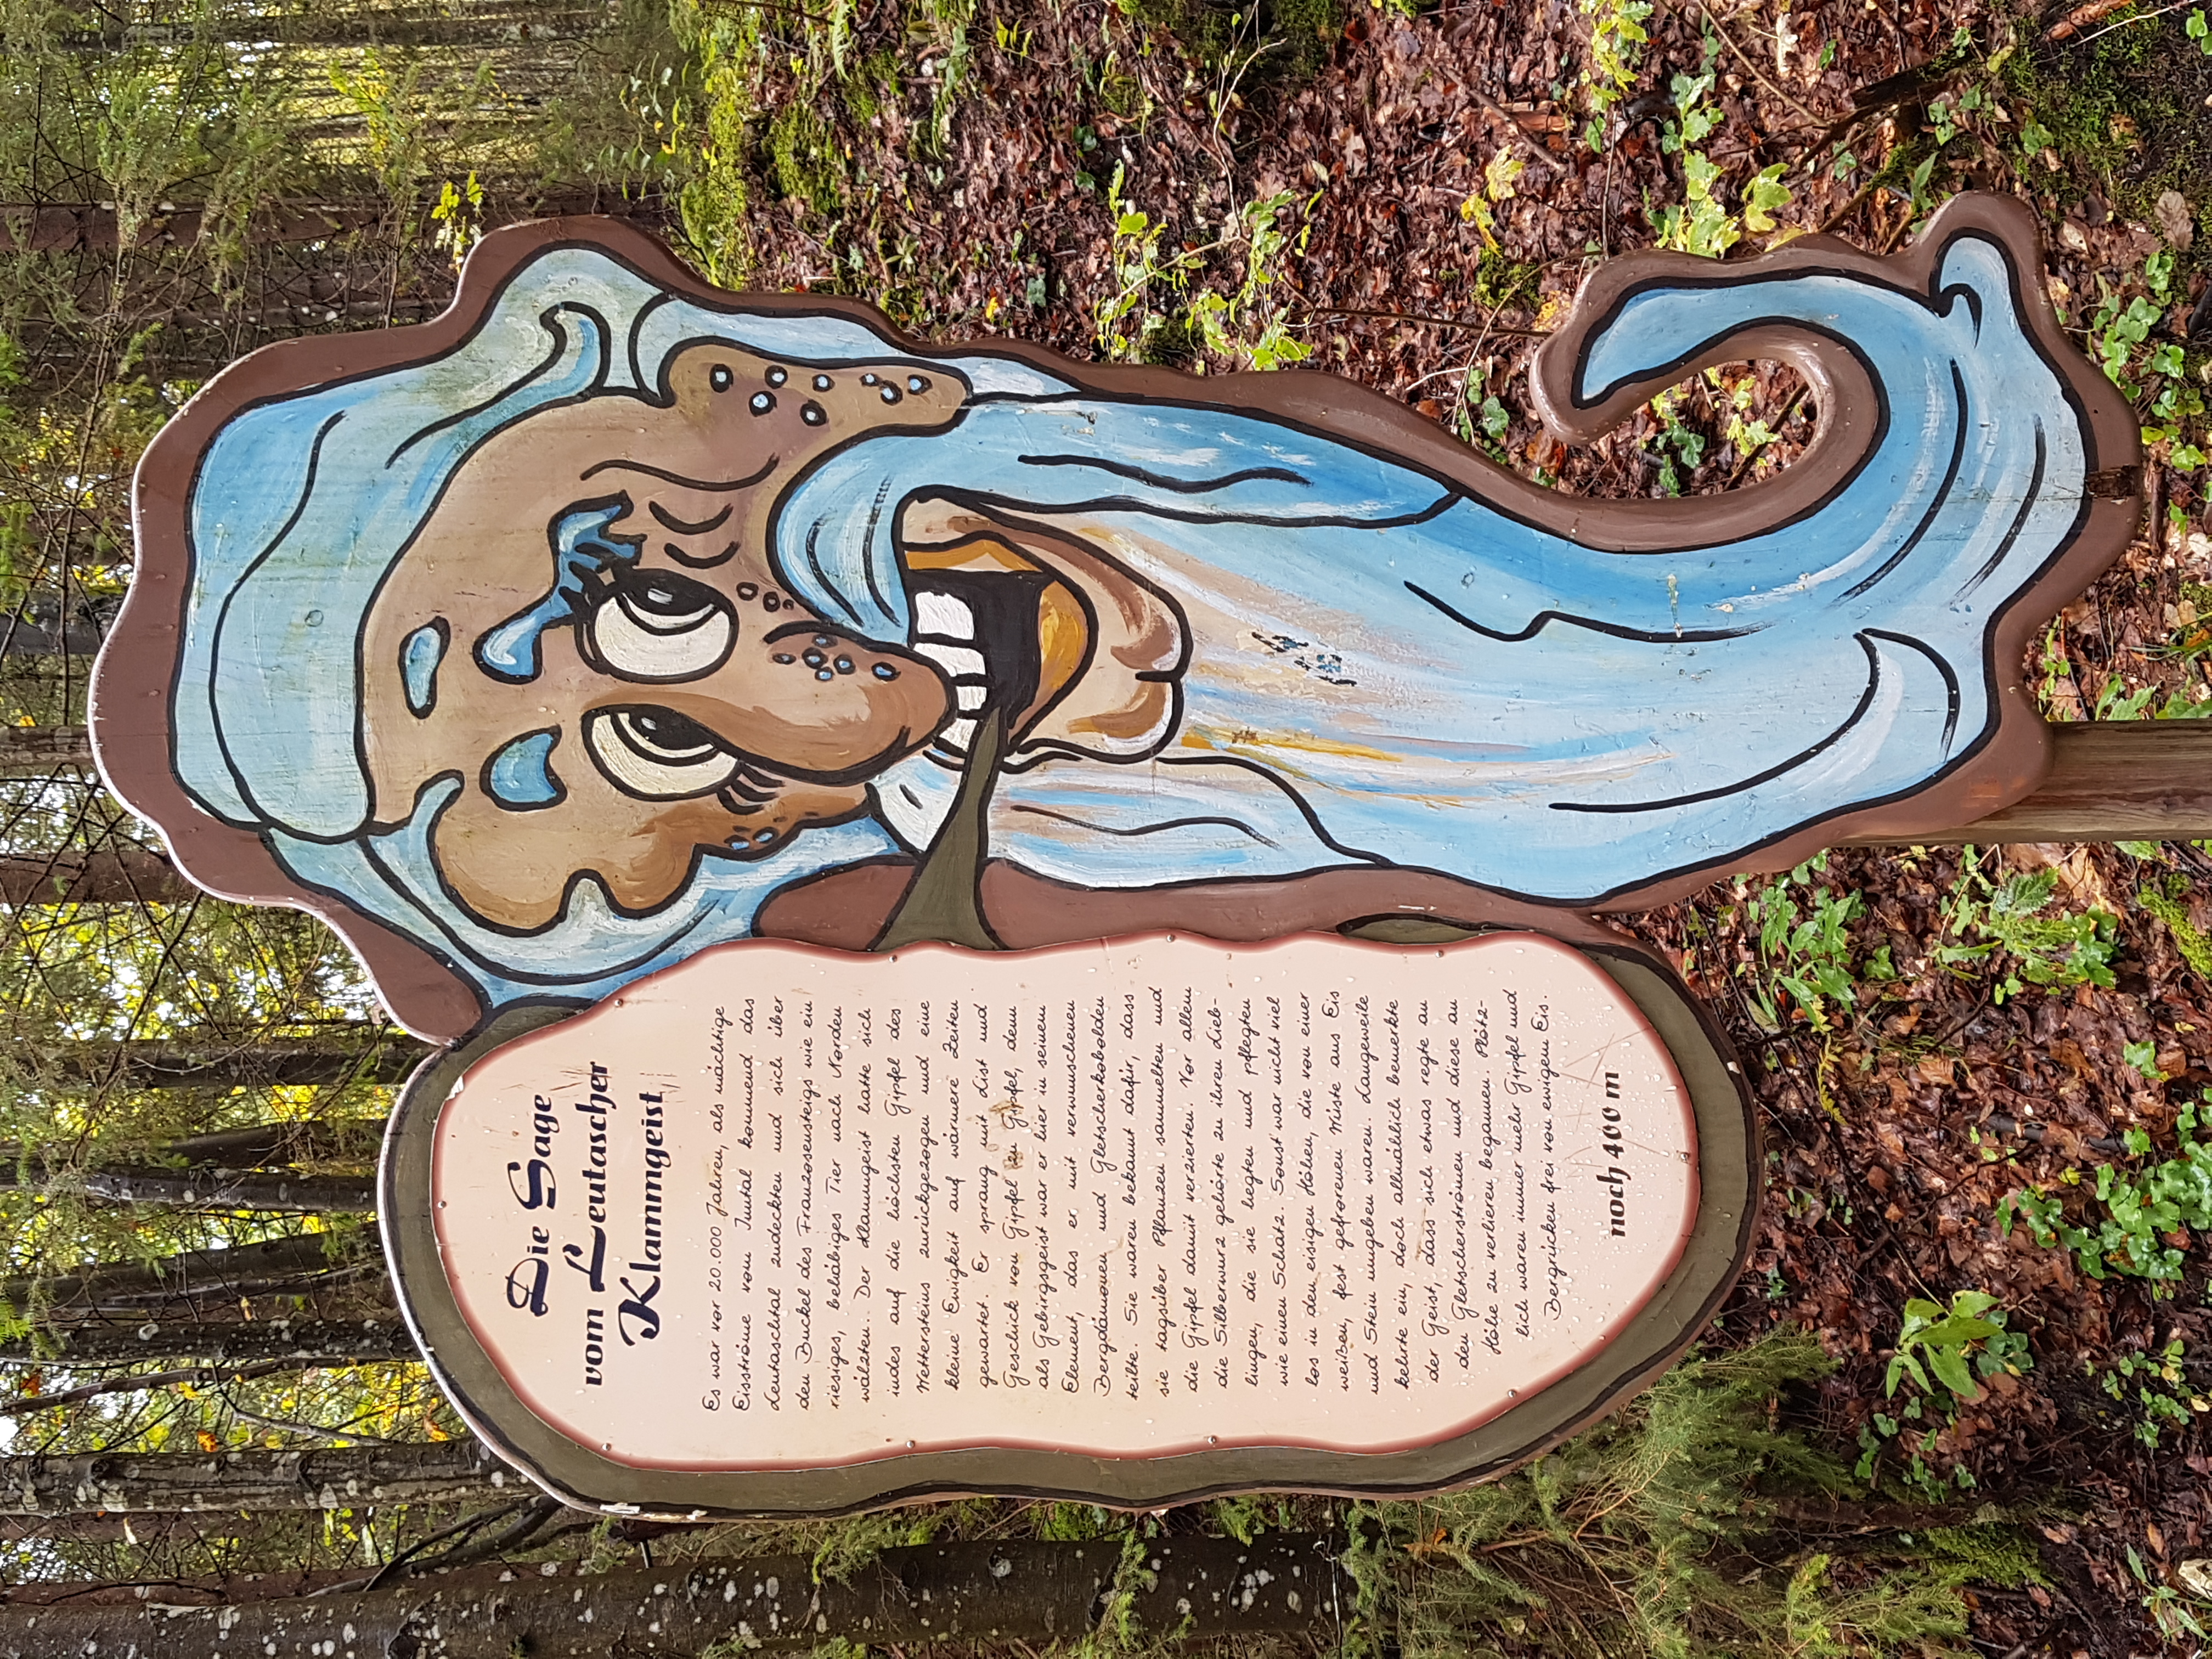 Die Sage
vom Leutascher
Klammgeist
Es war vor 20.000 Jahren, als mächtige
Eisströme vom Inntal kommend das
Leutaschtal zudeckten und sich über
den Buckel des Franzosensteigs wie ein
riesiges, beliäbiges Tier nach Norden
wälzten. Der Klammgeist hatte sich
indes auf die höchsten Gipfel des
Wettersteins zurückgezogen und eine
kleine Ewigkeit auf wärmere Zeiten
gewartet. Er sprang mit List und
Geschick von Gipfel zu Gipfel, denn
als Gebirgsgeist war er hier in seinem
Element, das er mit verwunschenen
Bergdämonen und Gletscherkobolden
teilte. Sie waren bekannt dafür, dass
sie tagsüber Pflanzen sammelten und
die Gipfel damit verzierten. Vor allem
die Silberwurz gehörte zu ihren Lieb-
lingen, die sie hegten und pflegten
wie einen Schatz. Sonst war nicht viel
los in den eisigen Höhen, die von einer
weißen, fest gefrorenen Wüste aus Eis
und Stein umgeben waren. Langeweile
kehrte ein, doch allmählich bemerkte
der Geist, dass sich etwas regte an
den Gletscherströmen und diese an
Höhe zu verlieren begannen. Plötz-
lich waren immer mehr Gipfel und
Bergrücken frei von ewigem Eis.
noch 400 m